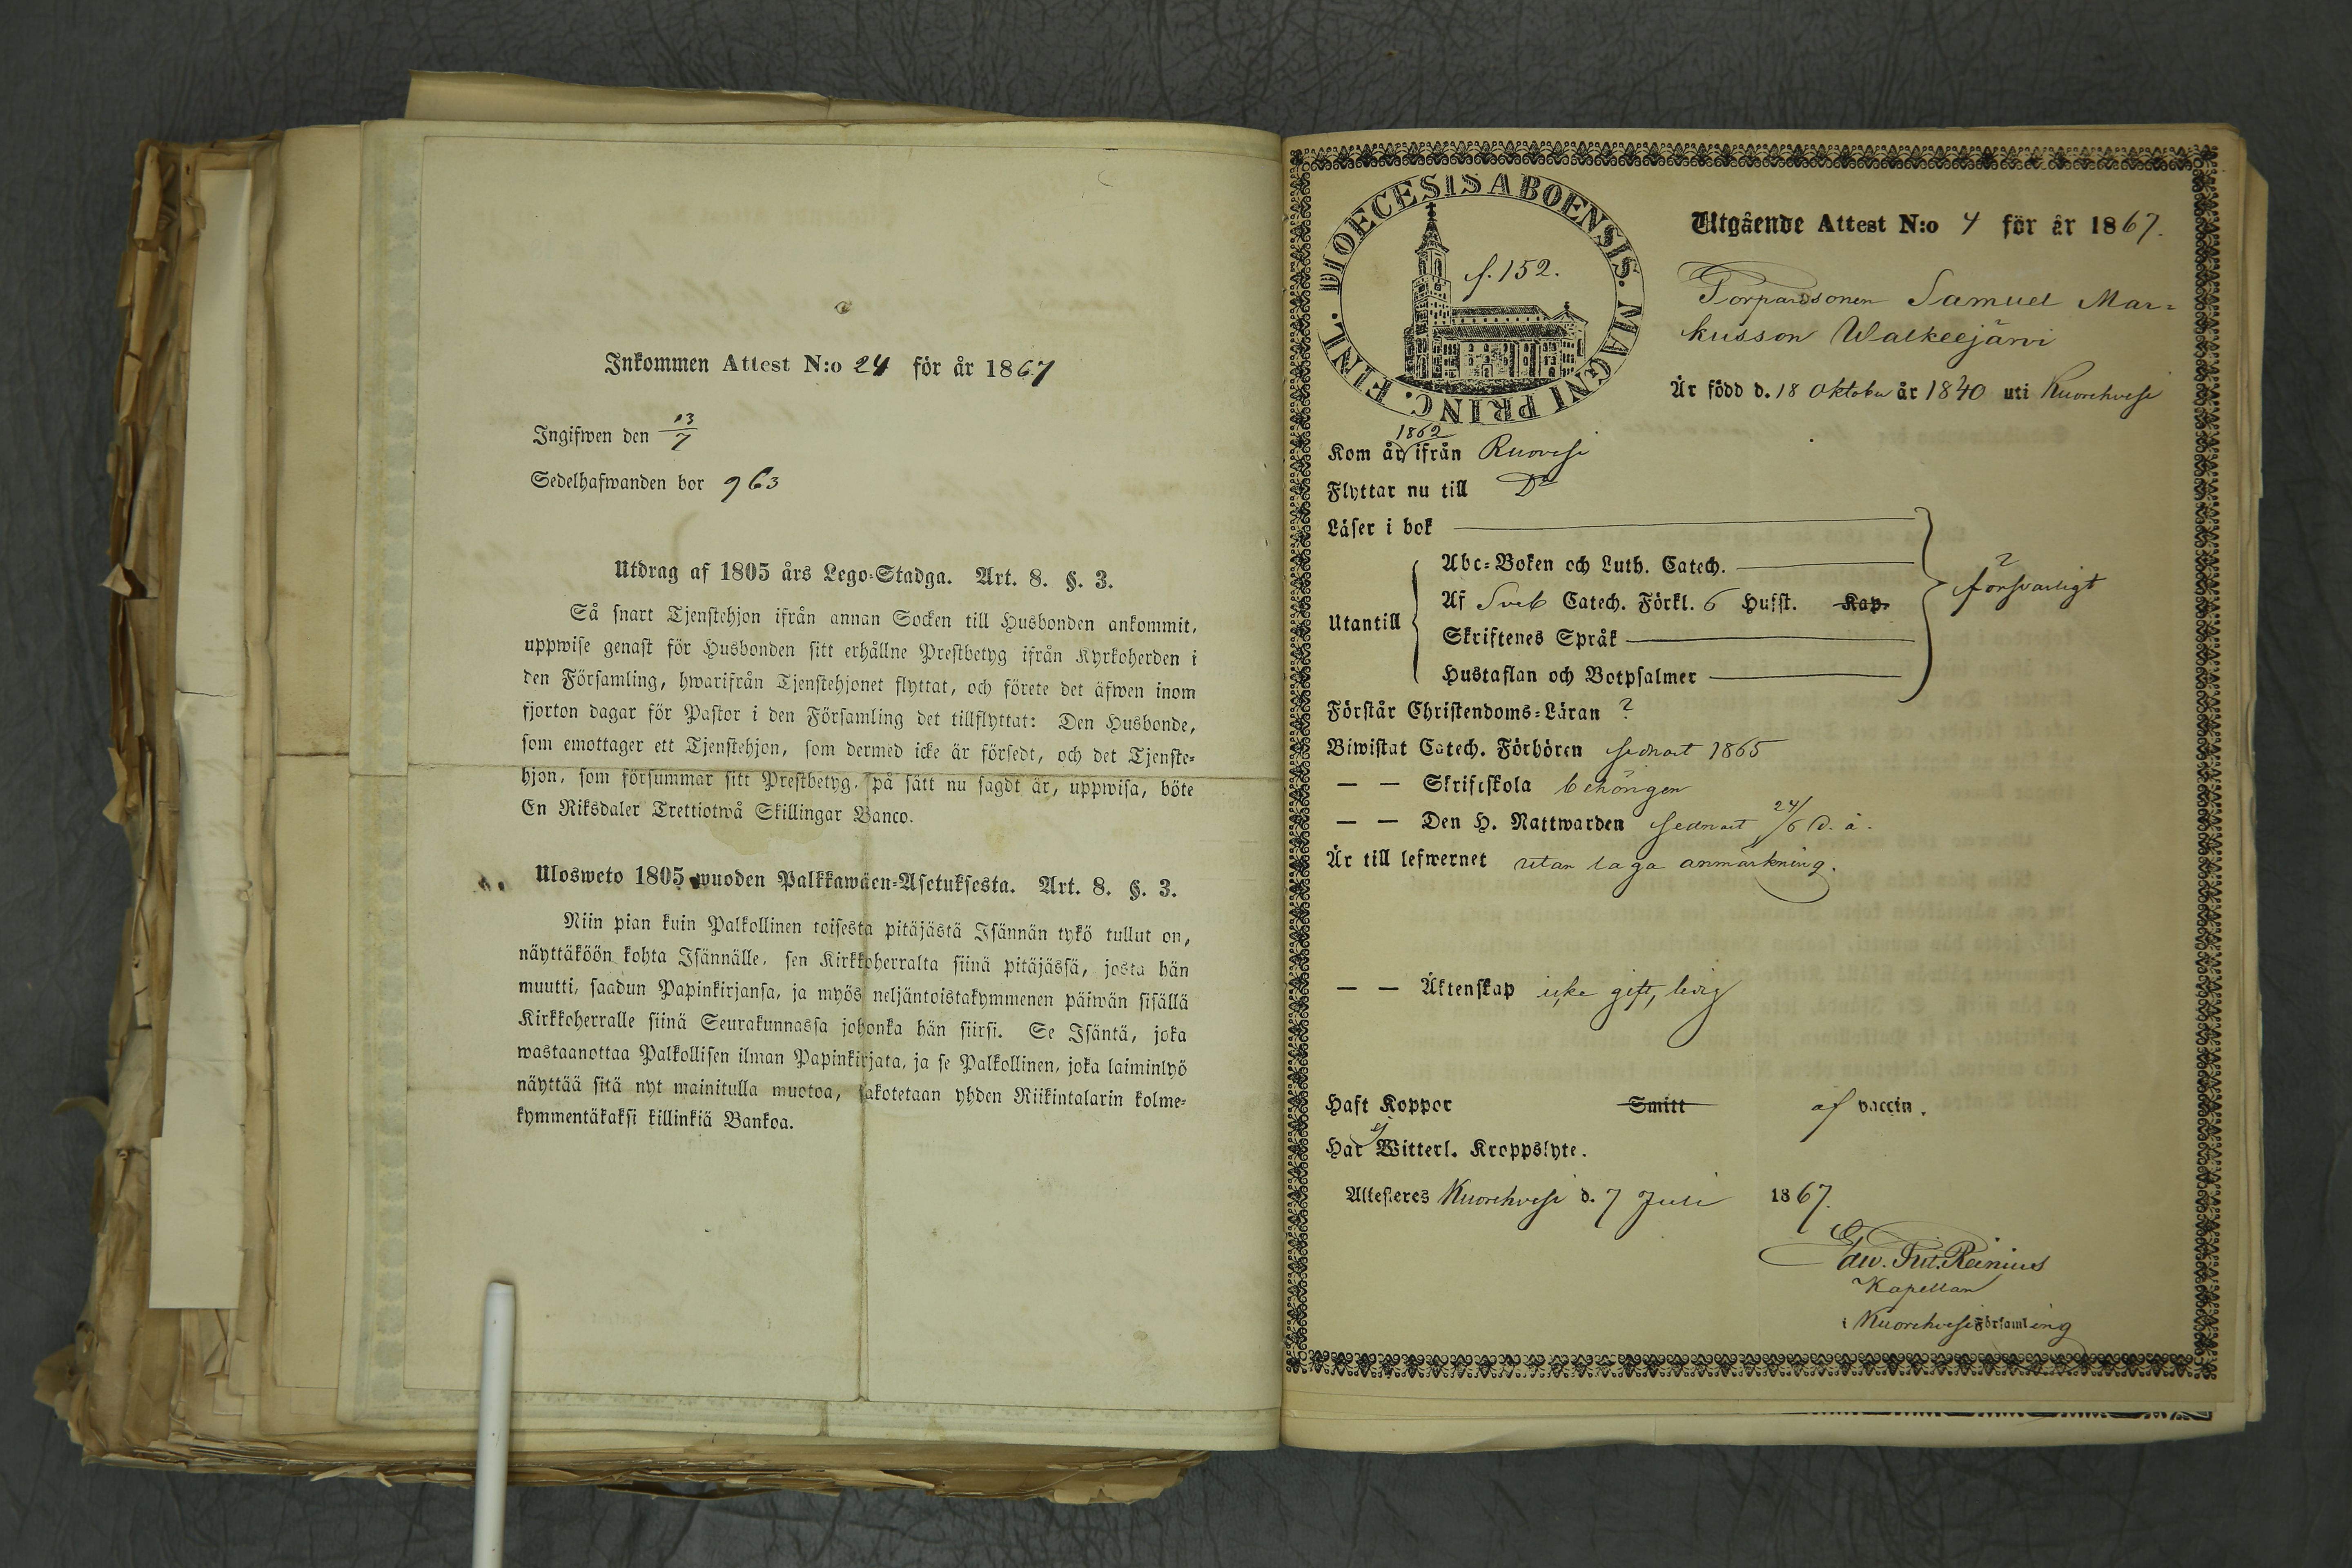 Inkommen Attest N:o 24 för år 1867
Ingifwen den 13/7
Sedelhafwanden bor 963
Utdrag af 1805 års Lego-Stadga. Art. 8. §. 3.
Så snart Tjenstehjon ifrån annan Socken till Husbonden ankommit,
uppwise genast för Husbonden sitt erhållne Prestbetyg ifrån Kyrkoherden i
den Församling, hwarifrån Tjenstehjonet flyttat, och förete det äfwen inom
fjorton dagar för Pastor i den Församling det tillflyttat: Den Husbonde,
som emottager ett Tjenstehjon, som dermed icke är försedt, och det Tjenste-
hjon, som försummar sitt Prestbetyg, på sätt nu sagdt är, uppwisa, böte
En Riksdaler Trettiotwå Skillingar Banco.
Ulosweto 1805 wuoden Palkkawäen-Asetuksesta. Art. 8. §. 3.
Niin pian kuin Palkollinen toisesta pitäjästä Isännän tykö tullut on,
näyttäköön kohta Isännälle, sen Kirkkoherralta siinä pitäjässä, josta hän
muutti, saadun Papinkirjansa, ja myös neljäntoistakymmenen päiwän sisällä
Kirkkoherralle siinä Seurakunnassa johonka hän siirsi. Se Isäntä, joka
wastaanottaa Palkollisen ilman Papinkirjata, ja se Palkollinen, joka laiminlyö
näyttää sitä nyt mainitulla muotoa, sakotetaan yhden Riikintalarin kolme-
kymmentäkaksi killinkiä Bankoa.
DIOECESIS ABOENSIS. MAGNI PRINC. FINL.
f. 152.
Utgående Attest N:o 4 för år 1867.
Torparesonen Samuel Mar=
kusson Walkeejärvi
Är född d. 18 Oktober år 1840 uti Kuorehvesi
Kom år 1862 ifrån Ruovesi
Flyttar nu till Do
Läser i bok
Utantill
Abc-Boken och Luth. Catech.
Af Sveb Catech. Förkl. 6 Hufst. Kap.
Skriftenes Språk
Hustaflan och Botpsalmer
försvarligt
Förstår Christendoms-Läran ?
Biwistat Catech. Förhören sednast 1865
— — Skriftskola behörigen
— — Den H. Nattwarden sednast 24/6 d. å.
Är till lefwernet utan laga anmärkning.
— — Äktenskap icke gift, ledig
Haft Koppor Smitt af vaccin.
Har ej Witterl. Kroppslyte.
Attesteres Kuorehvesi d. 7 Juli 1867.
Edw. Jul. Reinius
Kapellan
i Kuorehvesi Församling